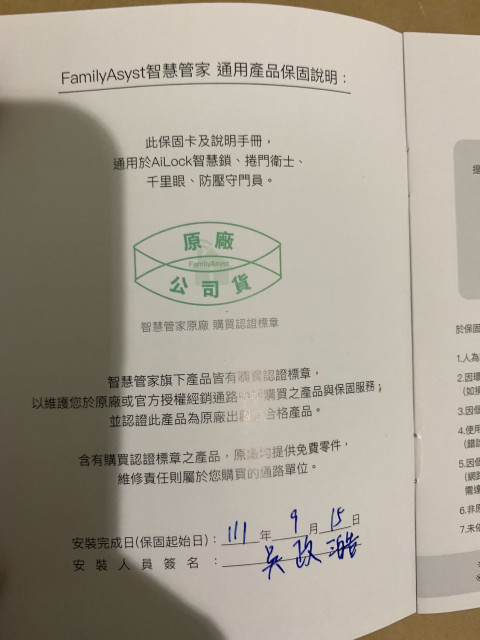 FamilyAsyst智慧管家 通用產品保固說明：
此保固卡及說明手冊，
通用於AiLock智慧鎖、捲門衛士、
千里眼、防壓守門員。
原廠
FamilyAsyst
公司貨
智慧管家原廠 購買認證標章
智慧管家旗下產品皆有購買認證標章，
以維護您於原廠或官方授權經銷通路 購買之產品與保固服務；
並認證此產品為原廠出 合格產品。
含有購買認證標章之產品，原廠均提供免費零件，
維修責任則屬於您購買的通路單位。
安裝完成日(保固起始日)：111年9月15日
安裝人員簽名：吳政澔
於保固
1.人為
2.因環
3.因個
4.使用
5.因個
(網路
需達
6.非原
7.未依